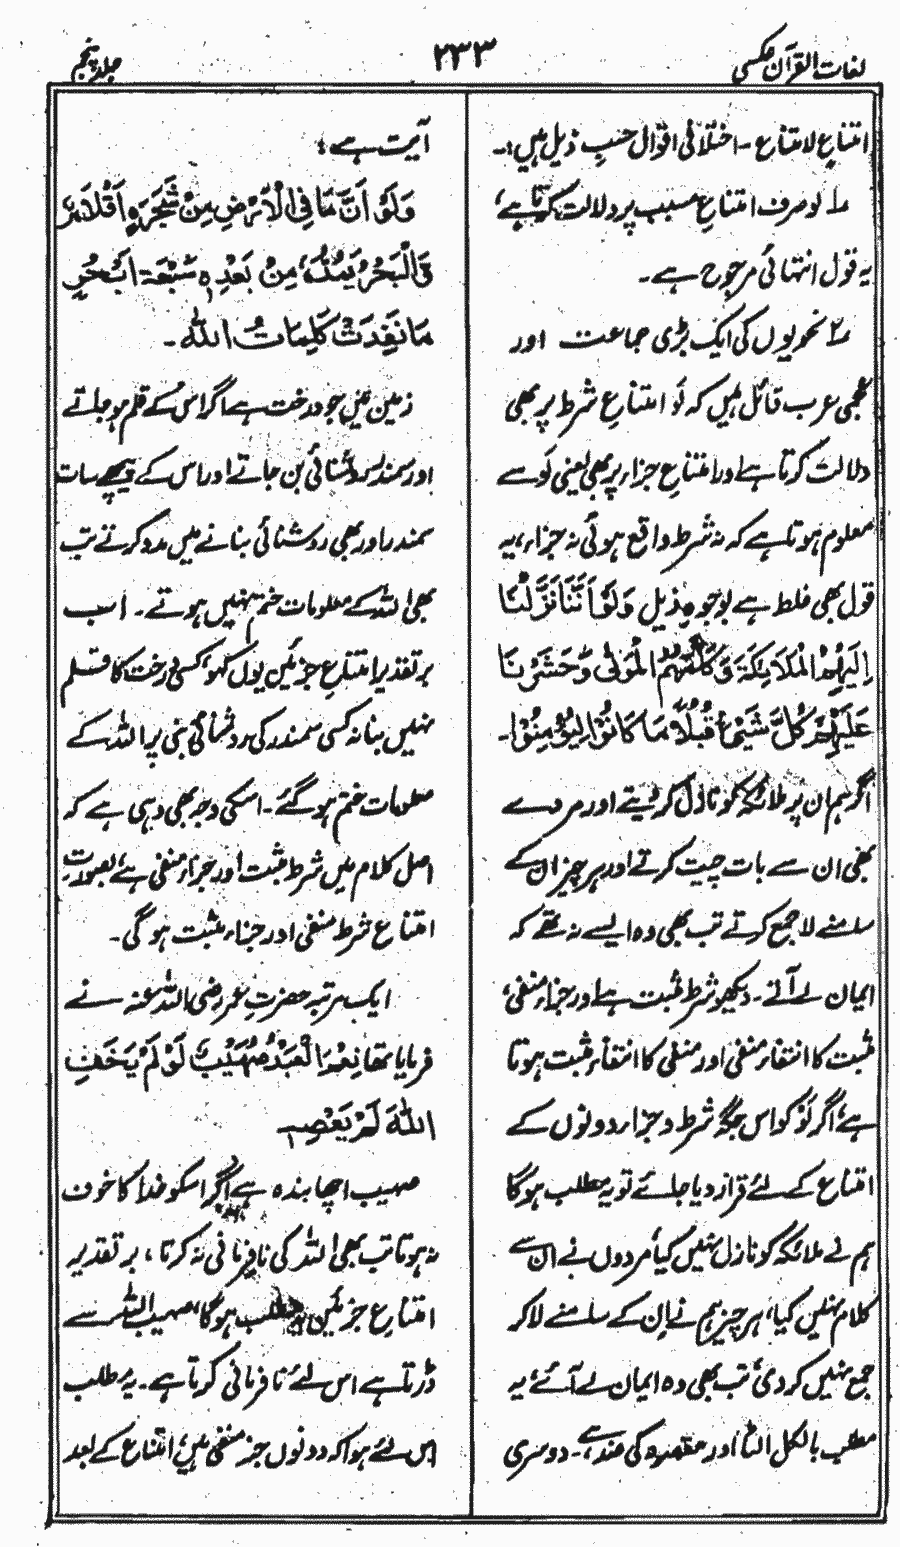 لغات القرآن عکسی
۲۳۳
جلد پنجم
امتناعِ لامتناع - اختلافی اقوال حسبِ ذیل ہیں:۔
۱ لو صرف امتناعِ مسبب پر دلالت کرتا ہے،
یہ قول انتہائی مرجوح ہے۔
۲ نحویوں کی ایک بڑی جماعت اور
عجمی عرب قائل ہیں کہ لَو امتناعِ شرط پر بھی
دلالت کرتا ہے اور امتناعِ جزاء پر بھی یعنی لَو سے
معلوم ہوتا ہے کہ نہ شرط واقع ہوئی نہ جزاء، یہ
قول بھی غلط ہے بوجوہِ ذیل وَلَوْ اَنَّنَا نَزَّلْنَا
اِلَیْهِمُ الْمَلَائِکَةَ وَکَلَّمَهُمُ الْمَوْتٰی وَحَشَرْنَا
عَلَیْهِمْ کُلَّ شَیْءٍ قُبُلًا مَا کَانُوْا لِیُؤْمِنُوْا۔
اگر ہم ان پر ملائکہ کو نازل کر دیتے اور مردے
بھی ان سے بات چیت کرتے اور ہر چیز ان کے
سامنے لا جمع کرتے تب بھی وہ ایسے نہ تھے کہ
ایمان لے آتے۔ دیکھو شرط مثبت ہے اور جزاء منفی،
مثبت کا انتفاء منفی اور منفی کا انتفاء مثبت ہوتا
ہے، اگر لَوْ کو اس جگہ شرط و جزاء دونوں کے
امتناع کے لئے قرار دیا جائے تو یہ مطلب ہو گا
ہم نے ملائکہ کو نازل نہیں کیا، مردوں نے ان سے
کلام نہیں کیا، ہر چیز ہم نے ان کے سامنے لا کر
جمع نہیں کر دی، تب بھی وہ ایمان لے آئے، یہ
مطلب بالکل الٹا اور مقصد کی ضد ہے۔ دوسری
آیت ہے:
وَلَوْ اَنَّ مَا فِی الْاَرْضِ مِنْ شَجَرَةٍ اَقْلَامٌ
وَّالْبَحْرُ یَمُدُّهٗ مِنْ بَعْدِهٖ سَبْعَةُ اَبْحُرٍ
مَا نَفِدَتْ کَلِمَاتُ اللهِ۔
زمین میں جو درخت ہے اگر اس کے قلم ہو جاتے
اور سمندر روشنائی بن جاتے اور اس کے پیچھے سات
سمندر اور بھی روشنائی بنانے میں مدد کرتے تب
بھی اللہ کے معلومات ختم نہیں ہوتے۔ اب
بر تقدیر امتناعِ جزئین یوں کہو، کسی درخت کا قلم
نہیں بنا نہ کسی سمندر کی روشنائی بنی پر اللہ کے
معلومات ختم ہو گئے۔ اسکی وجہ بھی وہی ہے کہ
اصل کلام میں شرط مثبت اور جزاء منفی ہے، بصورتِ
امتناعِ شرط منفی اور جزاء مثبت ہو گی۔
ایک مرتبہ حضرت عمر رضی اللہ عنہ نے
فرمایا تھا نِعْمَ الْعَبْدُ صُهَیْبٌ لَوْ لَمْ یَخَفِ
اللهَ لَمْ یَعْصِهٖ
صہیب اچھا بندہ ہے اگر اسکو خدا کا خوف
نہ ہوتا تب بھی اللہ کی نافرمانی نہ کرتا، بر تقدیر
امتناعِ جزئین مطلب ہو گا، صہیب اللہ سے
ڈرتا ہے اس لئے نافرمانی کرتا ہے۔ یہ مطلب
اس لئے ہوا کہ دونوں جز منفی ہیں، امتناع کے بعد